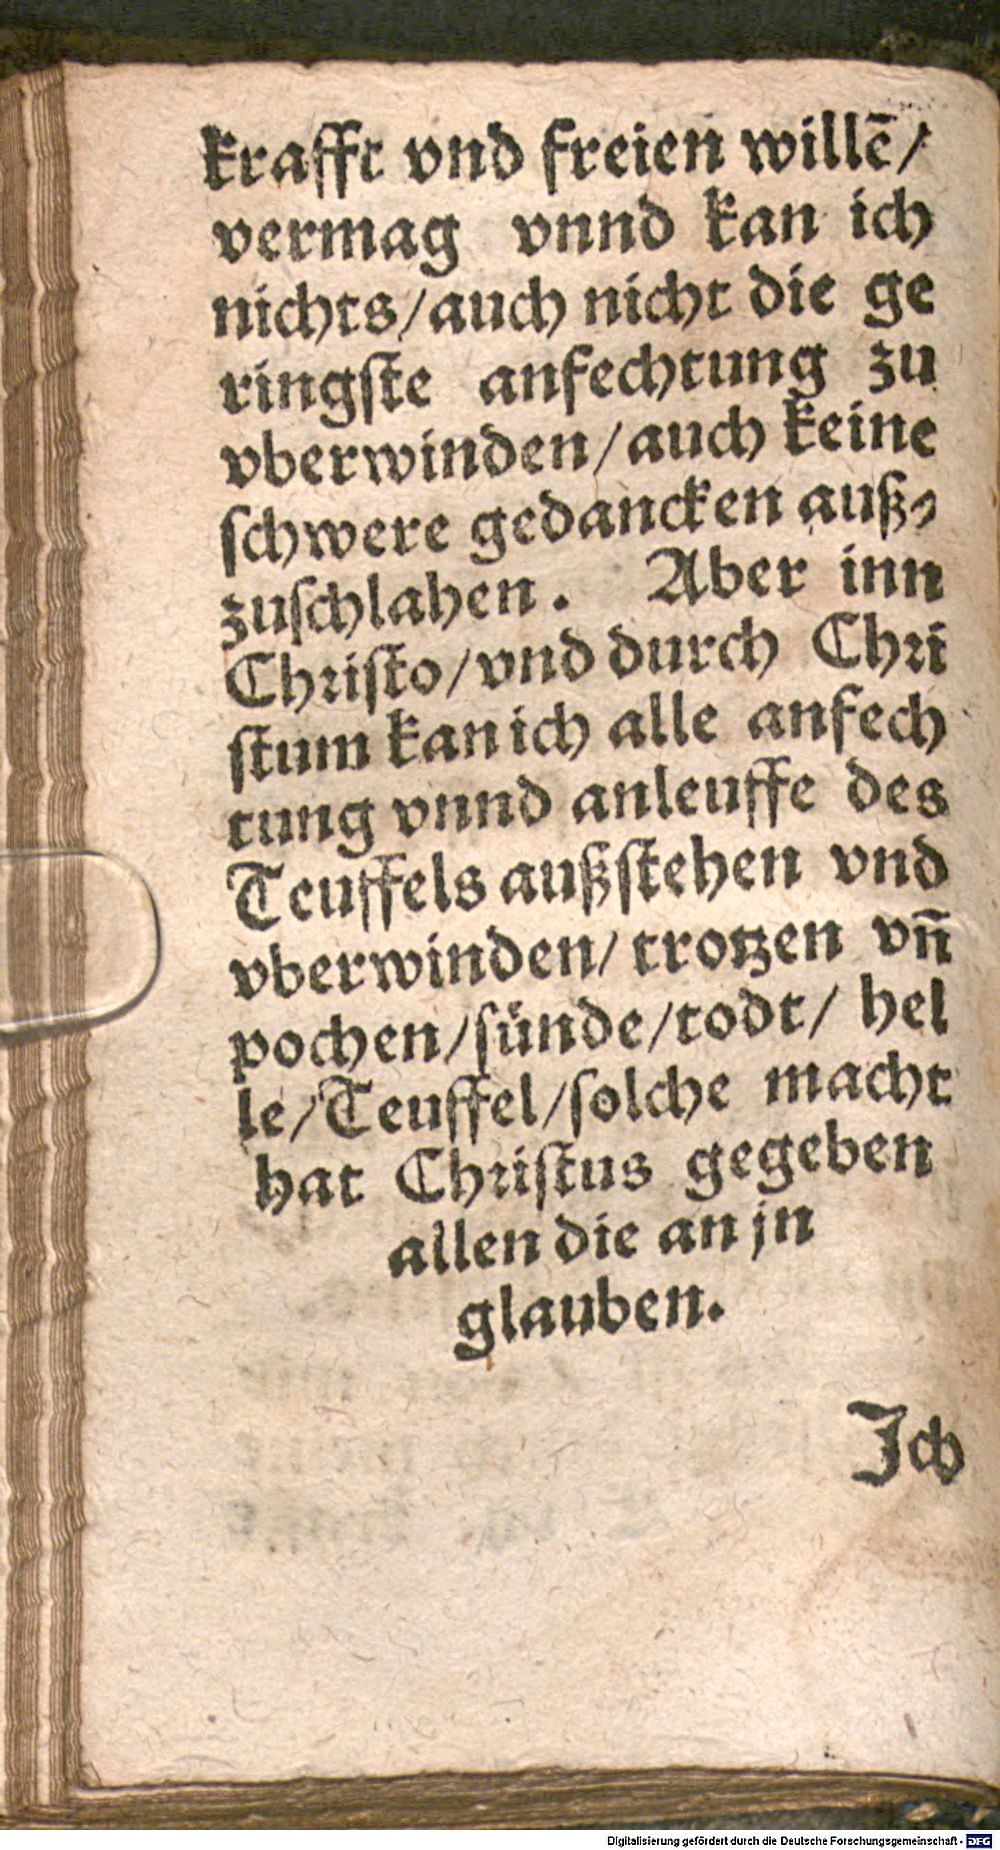 krafft vnd freien willē/
vermag vnnd kan ich
nichts/auch nicht die ge
ringste anfechtung zu
vberwinden/auch keine
schwere gedancken auß⸗
zuschlahen. Aber inn
Christo/vnd durch Chri
stum kan ich alle anfech
tung vnnd anleuffe des
Teuffels außstehen vnd
vberwinden/trotzen vn̄
pochen/sünde/todt/ hel
le/Teuffel/solche macht
hat Christus gegeben
allen die an jn
glauben.
Ich
Digitalisierung gefördert durch die Deutsche Forschungsgemeinschaft - DFG